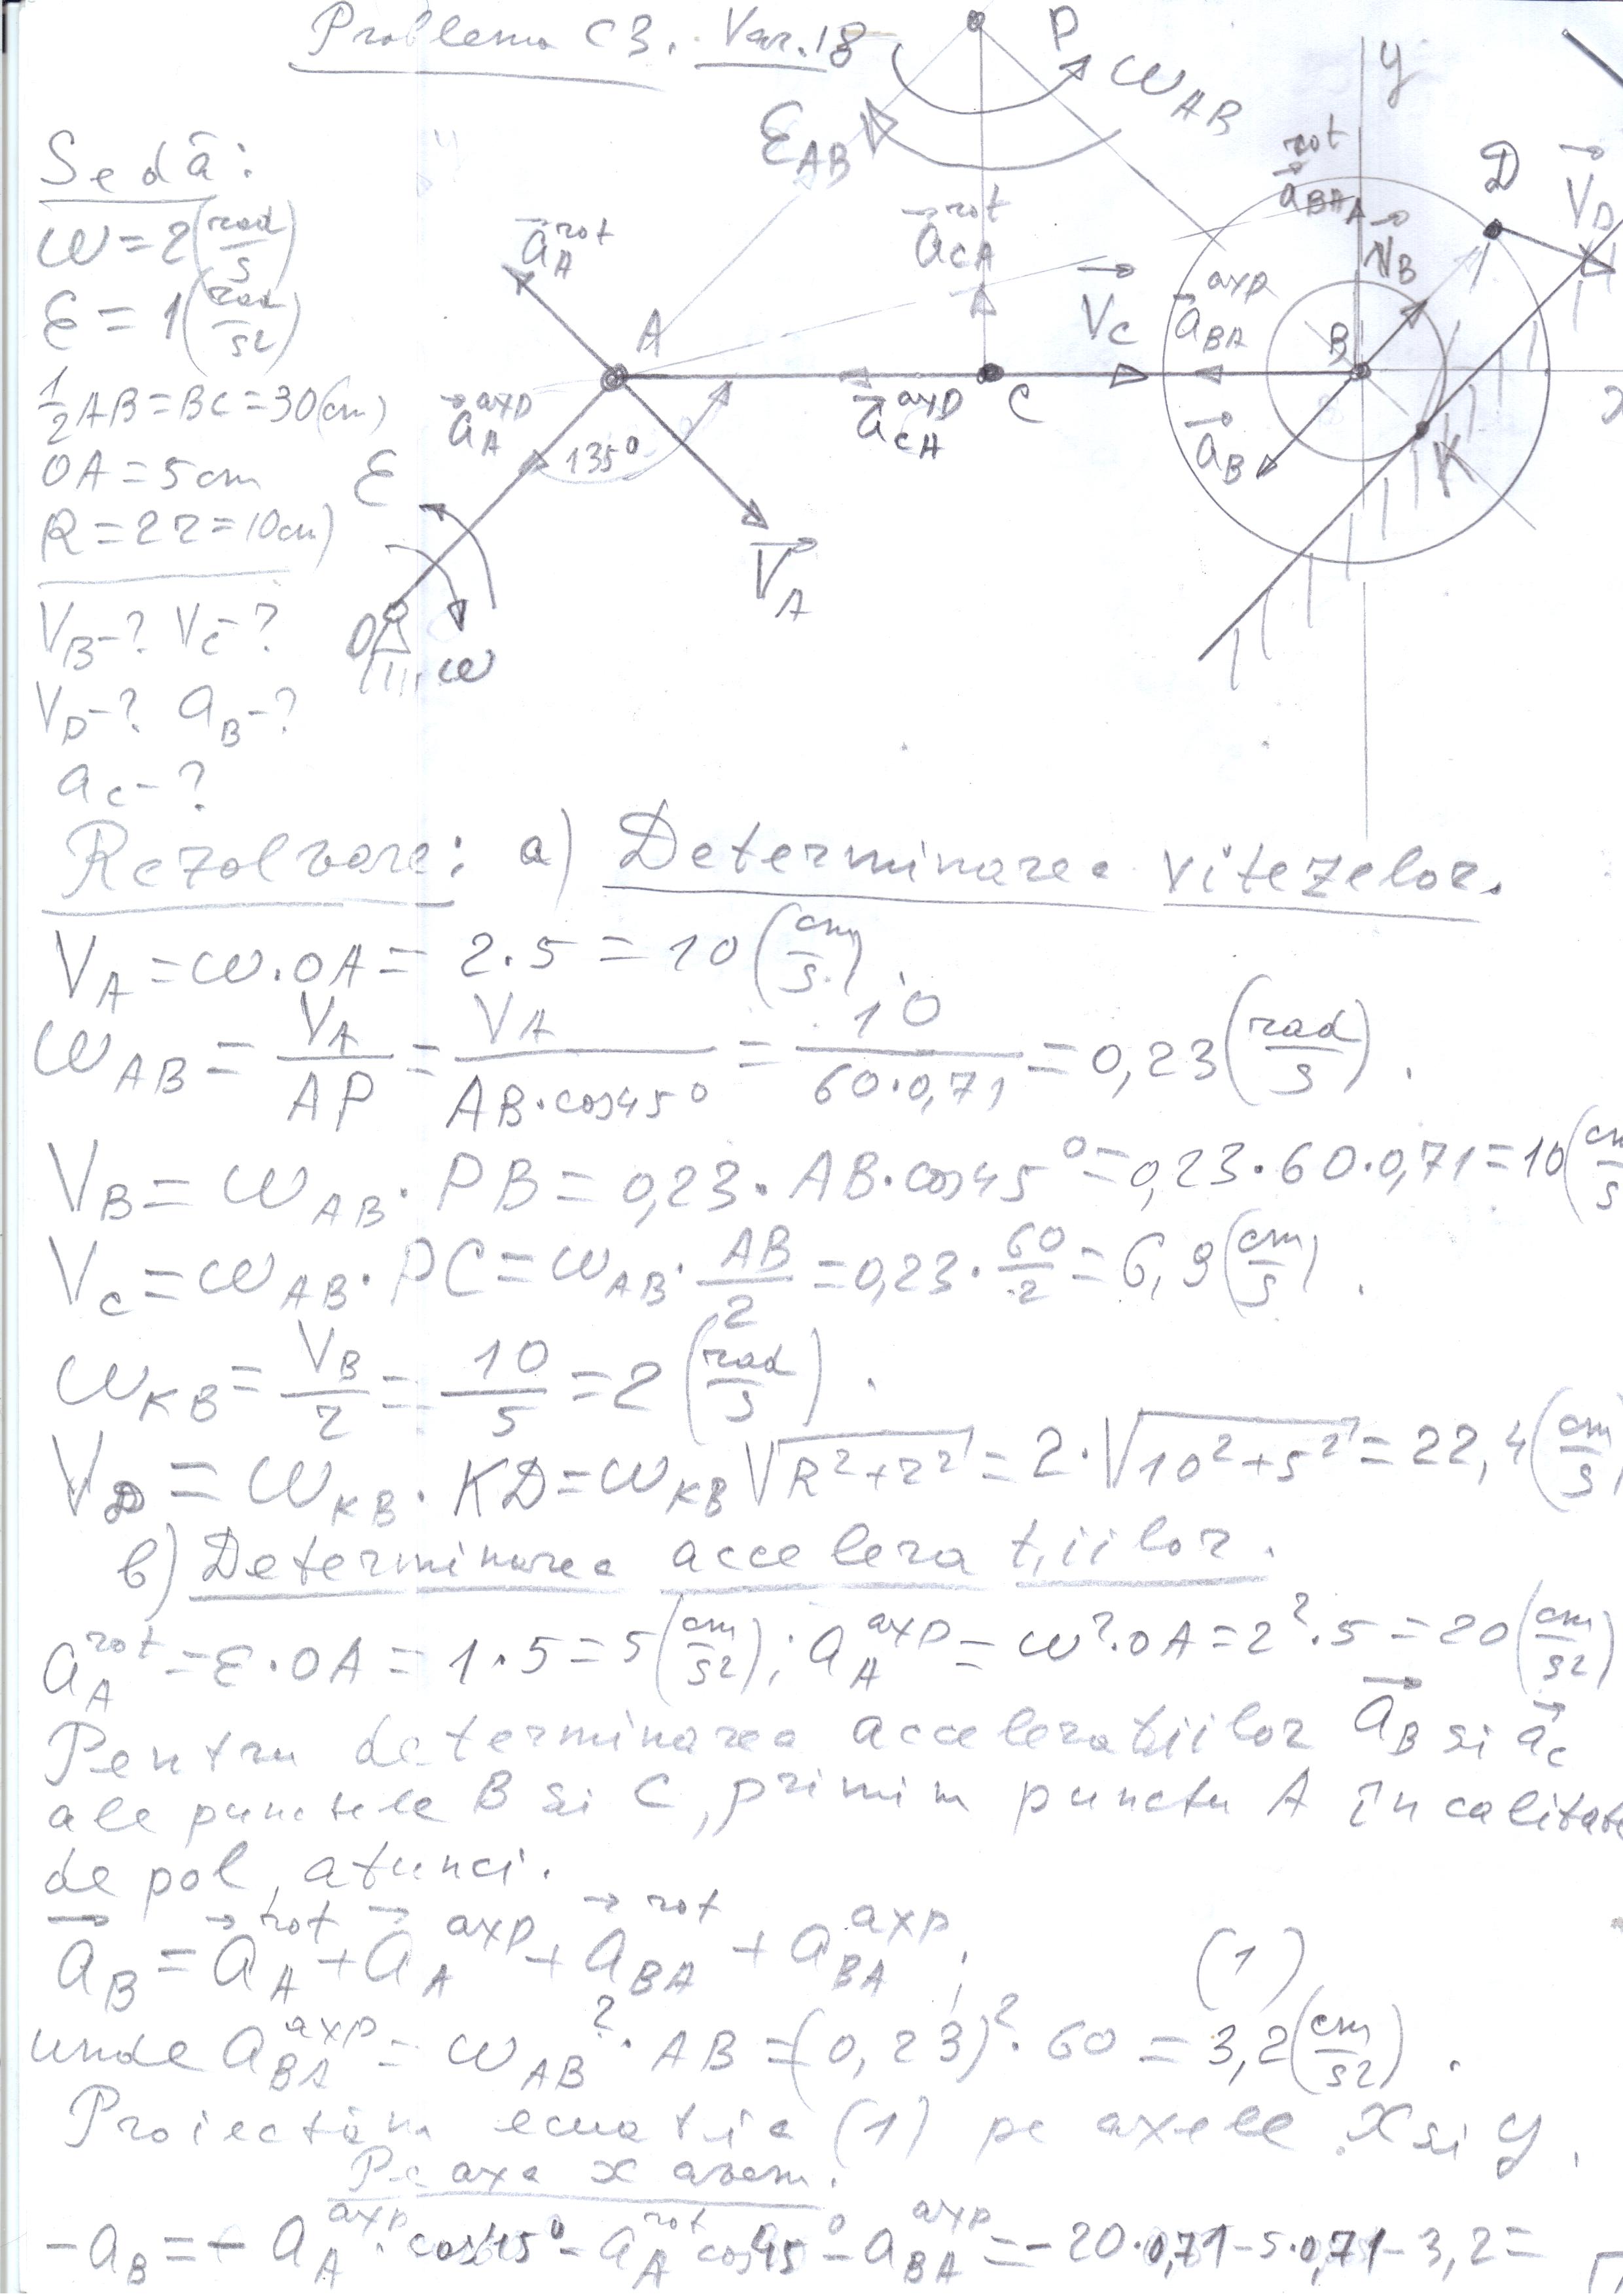 Problema C3. Var. 18
Se dă:
ω = 2 (rad/s)
ε = 1 (rad/s²)
1/2 AB = BC = 30 (cm)
OA = 5 cm
R = 2r = 10 cm)
V_B - ? V_C - ?
V_D - ? a_B - ?
a_C - ?
P
ω_AB
ε_AB
y
D
V_D
a_A^rot
A
a_CA^rot
V_C
a_BA^rot
V_B
a_BA^axp
B
C
a_A^axp
135°
a_CA^axp
a_B
K
x
ε
V_A
O
ω
Rezolvare: a) Determinarea vitezelor.
V_A = ω·OA = 2·5 = 10 (cm/s).
ω_AB = V_A/AP = V_A/(AB·cos45°) = 10/(60·0,71) = 0,23 (rad/s).
V_B = ω_AB·PB = 0,23·AB·cos45° = 0,23·60·0,71 = 10 (cm/s
V_C = ω_AB·PC = ω_AB·AB/2 = 0,23·60/2 = 6,9 (cm/s).
ω_KB = V_B/r = 10/5 = 2 (rad/s).
V_D = ω_KB·KD = ω_KB √(R²+r²) = 2·√(10²+5²) = 22,4 (cm/s)
b) Determinarea accelerațiilor.
a_A^rot = ε·OA = 1·5 = 5 (cm/s²); a_A^axp = ω²·OA = 2²·5 = 20 (cm/s²)
Pentru determinarea accelerațiilor a_B si a_C
ale punctele B si C, primim punctu A în calitate
de pol, atunci.
a_B = a_A^rot + a_A^axp + a_BA^rot + a_BA^axp; (1)
unde a_BA^axp = ω_AB²·AB = (0,23)²·60 = 3,2 (cm/s²).
Proiectăm ecuatia (1) pe axele x si y.
Pe axa x avem.
-a_B = -a_A^axp·cos45° - a_A^rot cos45° - a_BA^axp = -20·0,71 - 5·0,71 - 3,2 =